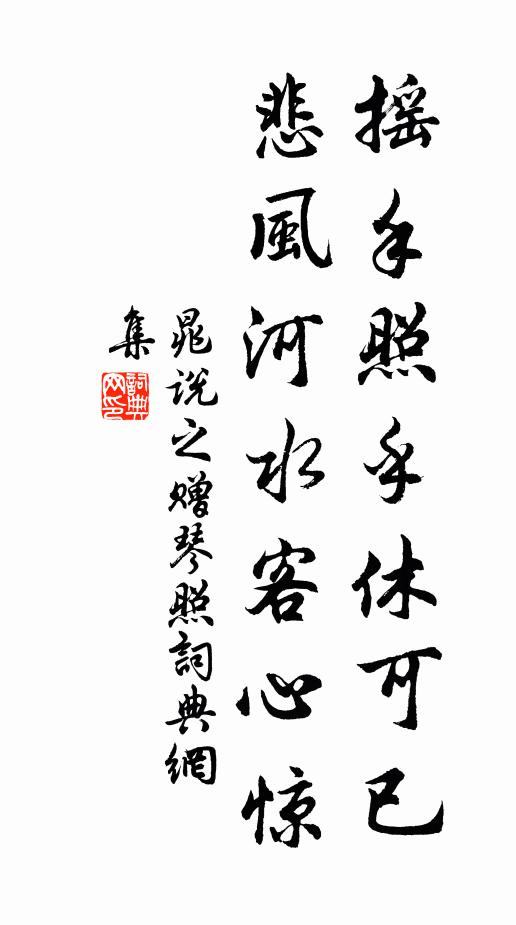 摇手照手休可已
悲風河水客心惊
晁说之赠琴照詞典網
集
詞典网印